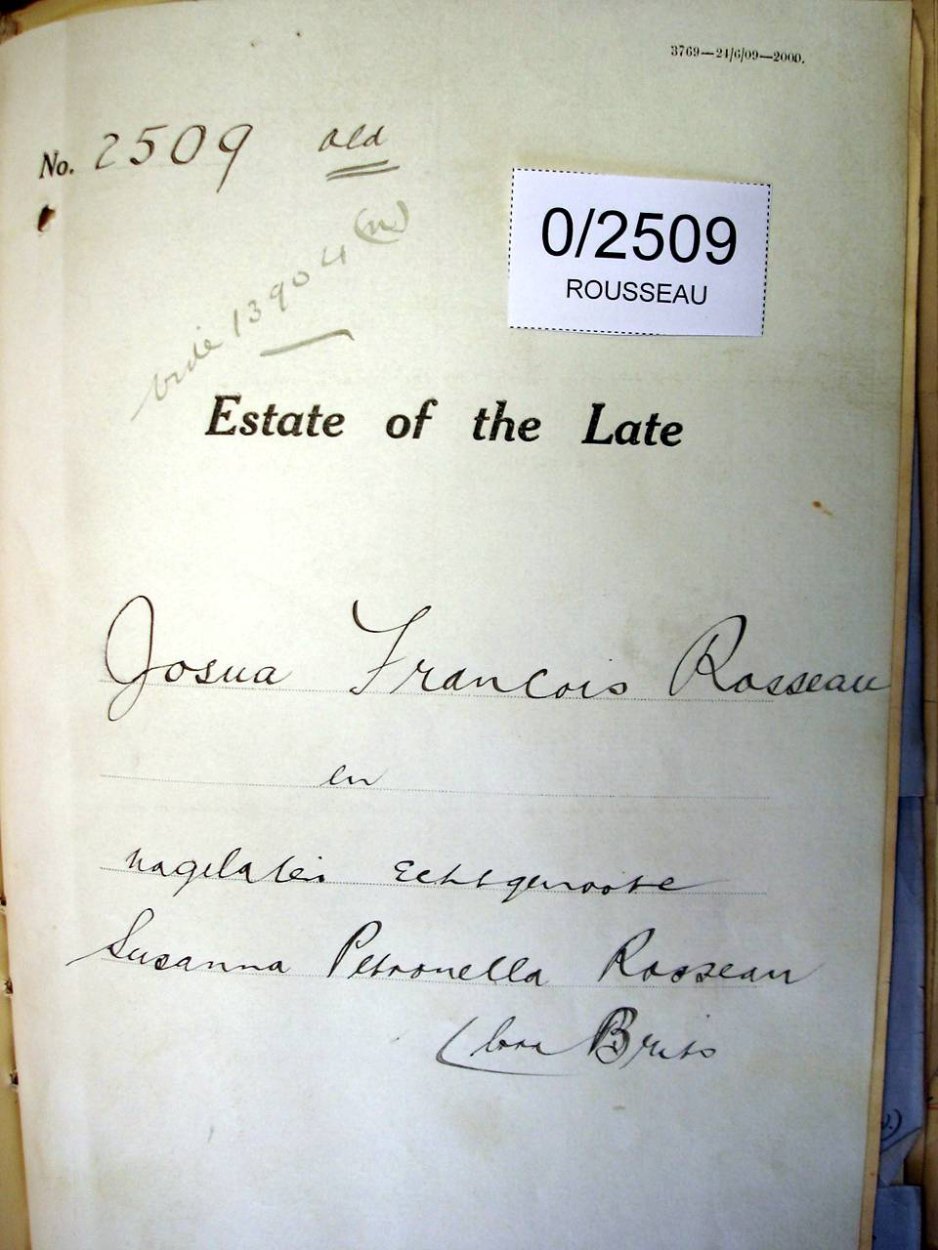 3769—21/6/09—2000.
No. 2509 old
0/2509
ROUSSEAU
vide 13904 (n)
Estate of the Late
Josua Francois Rosseau
en
nagelaten Echtgenoote
Susanna Petronella Rosseau
Brits